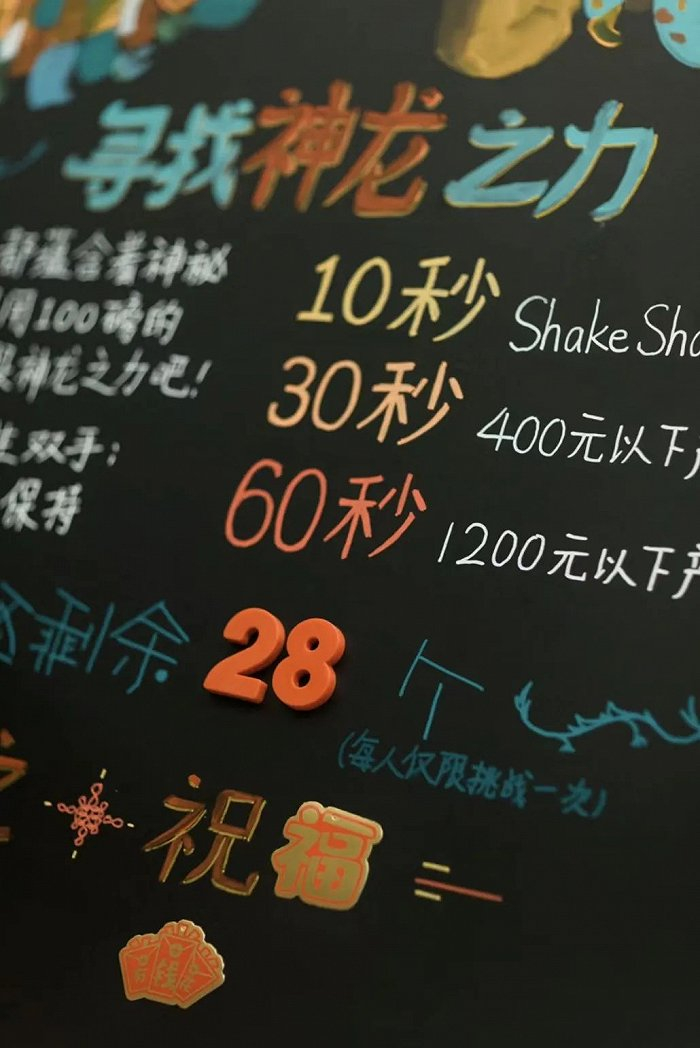 寻找神龙之力
都蕴含着神秘
用100磅的
神龙之力吧！
双手；
保持
10秒 Shake Sha
30秒 400元以下
60秒 1200元以下产
剩余 28 个
(每人仅限挑战一次)
之 祝福